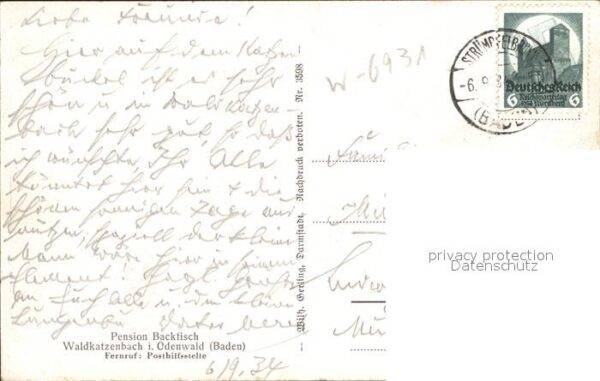 Liebe Freunde!
Hier auf dem Katzen-
buckel ist es sehr
schön u. in Waldkatzen-
bach sehr gut, so daß
ich wünschte, Ihr Alle
könntet hier sein & die
schönen sonnigen Tage aus-
nutzen, speziell der kleine
Mann wäre hier in seinem
Element! Herzl. Grüße
an Euch alle u. den kleinen
Pension Backfisch
Waldkatzenbach i. Odenwald (Baden)
Fernruf: Posthilfsstelle
6/9.34
Wilh. Gerling, Darmstadt. Nachdruck verboten. Nr. 3508
W-6931
STRÜMPFELBRUNN
-6.9.3
(BADEN)
Deutsches Reich
Reichsparteitag
1934 Nürnberg
6 6
privacy protection
Datenschutz